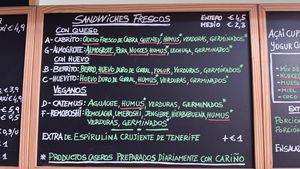 SANDWICHES FRESCOS
ENTERO €4,5
MEDIO €2,3
CON QUESO
A - CABRITO: QUESO FRESCO DE CABRA, CHUTNEY, HUMUS, VERDURAS, GERMINADOS*
G - ALMOGROTE: ALMOGROTE, PERA, NUECES, HUMUS, LECHUGA, GERMINADOS*
CON HUEVO
B - BERRITO: BERRO, HUEVO DURO DE CORRAL, YOGUR, VERDURAS, GERMINADOS*
C - HUEVITO: HUEVO DURO DE CORRAL, HUMUS, VERDURAS, GERMINADOS*
VEGANOS
D - CATEMUS: AGUACATE, HUMUS, VERDURAS, GERMINADOS*
F - REMOBOSHI: REMOLACHA, UMEBOSHI, JENGIBRE, HIERBABUENA, HUMUS
VERDURAS, GERMINADOS*
EXTRA DE ESPIRULINA CRUJIENTE DE TENERIFE + €1
* PRODUCTOS CASEROS PREPARADOS DIARIAMENTE CON CARIÑO
AÇAI CUP
YOGUR
EXTRA
PORCIÓN
PORCIÓN